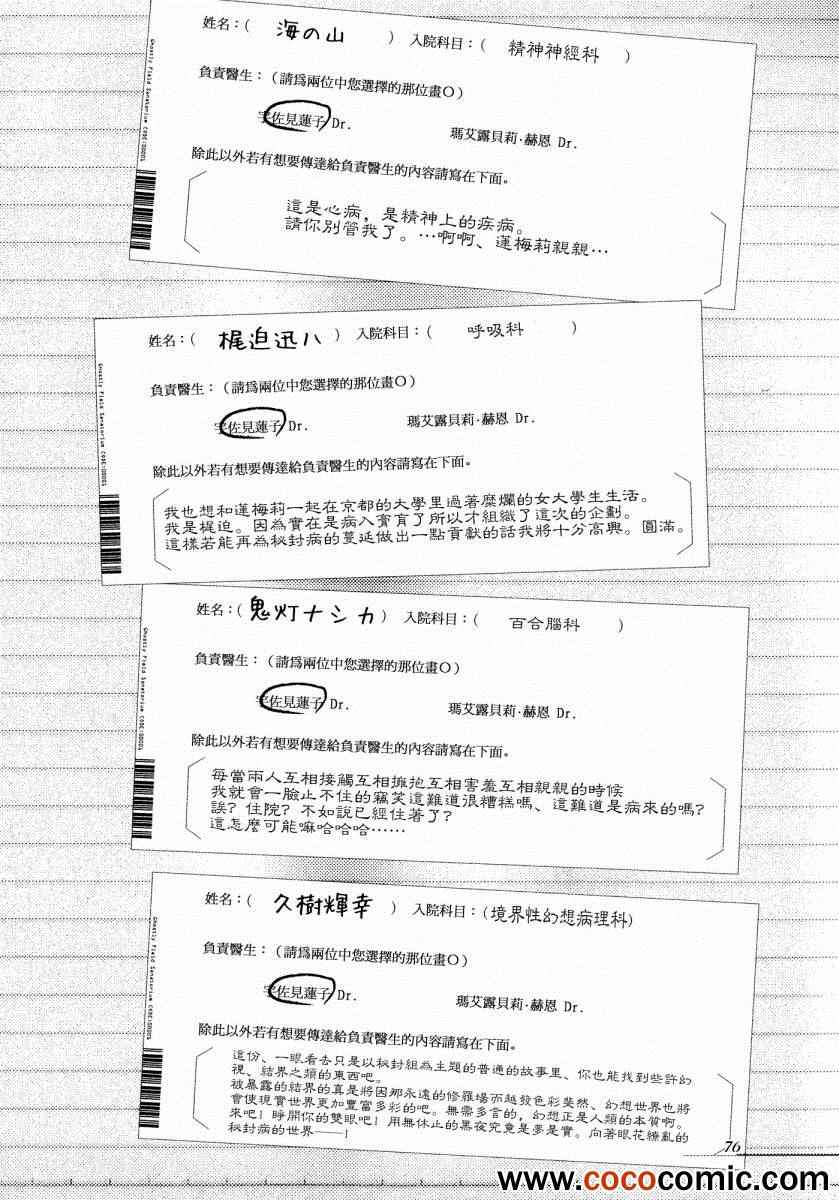 姓名：（ 海の山 ） 入院科目：（ 精神神經科 ）
負責醫生：（請爲兩位中您選擇的那位畫O）
宇佐見蓮子 Dr. 瑪艾露貝莉·赫恩 Dr.
除此以外若有想要傳達給負責醫生的內容請寫在下面。
這是心病，是精神上的疾病。
請你別管我了。…啊啊、蓮梅莉親親…
Ghostly Field Sanatorium CODE:00001
姓名：（ 梶迫迅八 ） 入院科目：（ 呼吸科 ）
負責醫生：（請爲兩位中您選擇的那位畫O）
宇佐見蓮子 Dr. 瑪艾露貝莉·赫恩 Dr.
除此以外若有想要傳達給負責醫生的內容請寫在下面。
我也想和蓮梅莉一起在京都的大學里過著糜爛的女大學生生活。
我是梶迫。因為實在是病入膏肓了所以才組織了這次的企劃。
這樣若能再為秘封病的蔓延做出一點貢獻的話我將十分高興。圓滿。
Ghostly Field Sanatorium CODE:00001
姓名：（ 鬼灯ナシカ ） 入院科目：（ 百合腦科 ）
負責醫生：（請爲兩位中您選擇的那位畫O）
宇佐見蓮子 Dr. 瑪艾露貝莉·赫恩 Dr.
除此以外若有想要傳達給負責醫生的內容請寫在下面。
每當兩人互相接觸互相擁抱互相害羞互相親親的時候
我就會一臉止不住的竊笑這難道很糟糕嗎、這難道是病來的嗎？
誒？住院？不如說已經住著了？
這怎麼可能嘛哈哈哈……
Ghostly Field Sanatorium CODE:00001
姓名：（ 久樹輝幸 ） 入院科目：（境界性幻想病理科）
負責醫生：（請爲兩位中您選擇的那位畫O）
宇佐見蓮子 Dr. 瑪艾露貝莉·赫恩 Dr.
除此以外若有想要傳達給負責醫生的內容請寫在下面。
這份、一眼看去只是以秘封組為主題的普通的故事里、你也能找到些許幻
視、結界之類的東西吧。
被暴露的結界的真是將因那永遠的修羅場而越發色彩斐然、幻想世界也將
會使現實世界更加豐富多彩的吧。無需多言的，幻想正是人類的本質啊。
來吧！睜開你的雙眼吧！用無休止的黑夜究竟是夢是實。向著眼花繚亂的
秘封病的世界——！
Ghostly Field Sanatorium CODE:00001
76
www.cococomic.com